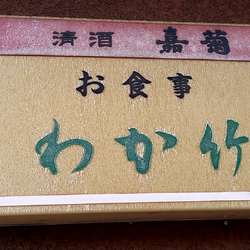 清酒 嘉菊
お食事
わか竹